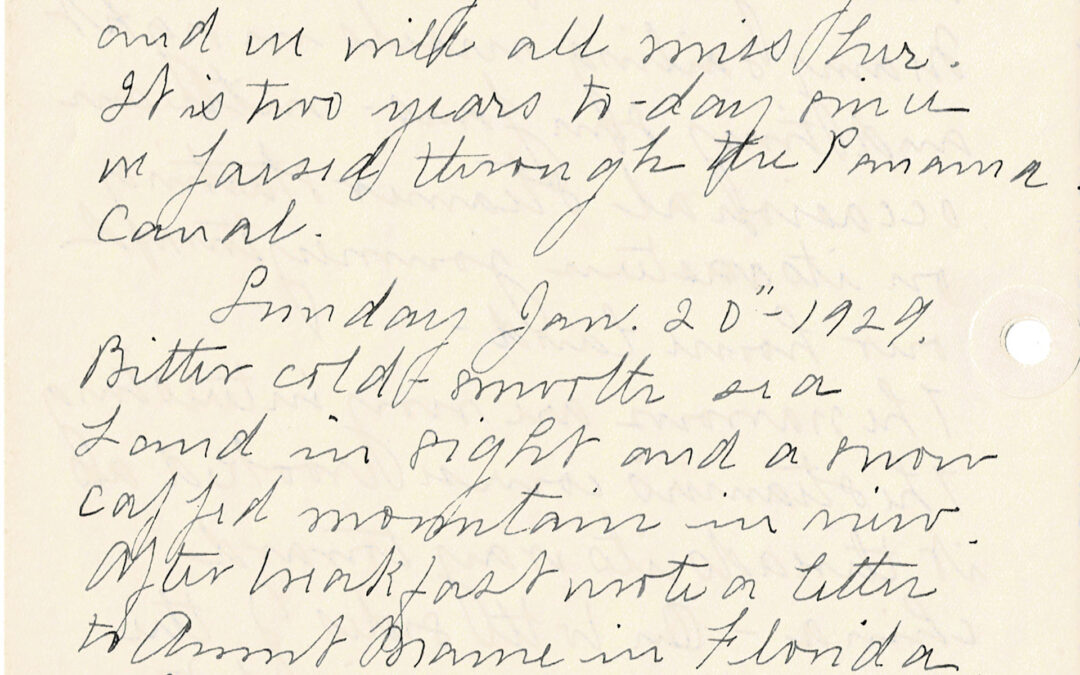 and we will all miss her.
It is two years to-day since
we passed through the Panama
Canal.
Sunday Jan. 20" - 1929.
Bitter cold - smooth sea
Land in sight and a snow
capped mountain in view.
After breakfast wrote a letter
to Aunt Mame in Florida